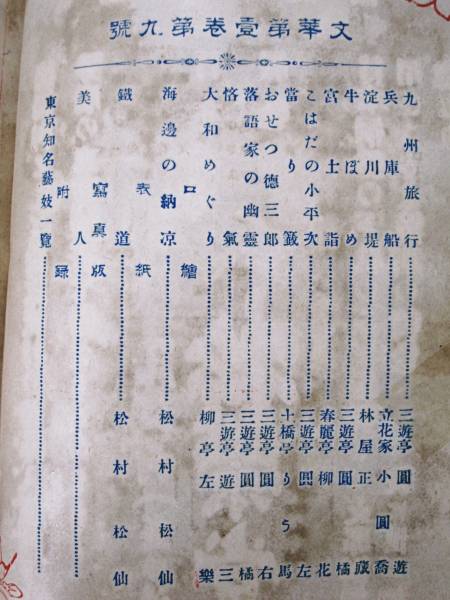 文華第壹卷第九號
九州旅行……三遊亭圓遊
兵庫船……立花家小圓喬
淀川堤……林屋正藏
牛ぼめ……三遊亭圓橘
富士詣……春麗亭柳花
こはだの小平次……三遊亭圓左
當り籤……土橋亭りう馬
おせつ德三郎……三遊亭圓右
落語家の幽靈……三遊亭圓橘
悋氣……三遊亭遊三
大和めぐり……柳亭左樂
口繪
海邊の納凉……松村松仙
表紙
鐵道……松村松仙
寫眞版
美人……
附錄
東京知名藝妓一覽……